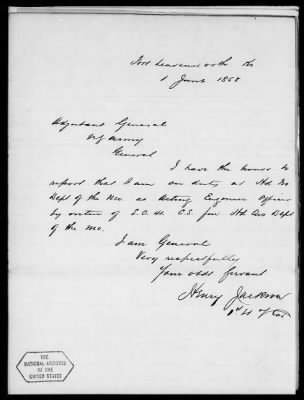 Fort Leavenworth Ks
1 June 1868
Adjutant General
U.S. Army
General
I have the honor to
report that I am on duty at Hd Qrs
Dept of the Mo. as Acting Engineer Officer
by virtue of S.O. C.S. from Hd Qrs Dept
of the Mo.
I am General
Very respectfully
Your obdt Servant
Henry Jackson
1st Lt 7 Cav
THE
NATIONAL ARCHIVES
OF THE
UNITED STATES